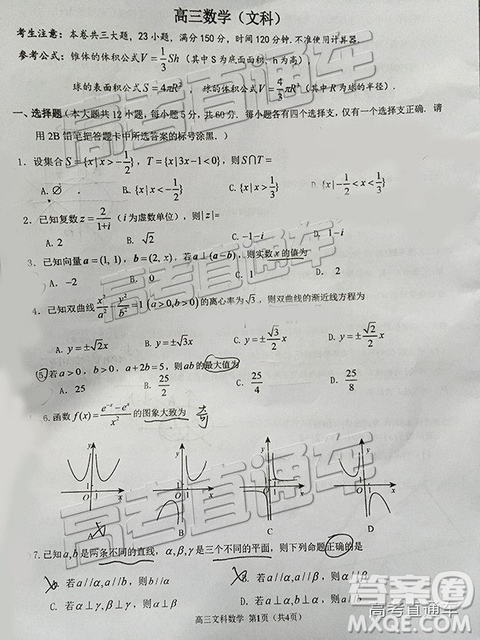 高三数学（文科）
考生注意：本卷共三大题，23小题，满分150分，时间120分钟.不准使用计算器.
参考公式：锥体的体积公式V=1/3Sh（其中S为底面面积，h为高）；
球的表面积公式S=4πR²，球的体积公式V=4/3πR³（其中R为球的半径）.
一、选择题（本大题共12小题，每小题5分，共60分. 每小题各有四个选择支，仅有一个选择支正确. 请
用2B铅笔把答题卡中所选答案的标号涂黑.）
1. 设集合S={x|x>-1/2}，T={x|3x-1<0}，则S∩T=
A. ∅ B. {x|x<-1/2} C. {x|x>1/3} D. {x|-1/2<x<1/3}
2. 已知复数z=2/(1+i)（i为虚数单位），则|z|=
A. 2 B. √2 C. -1-i D. -1+i
3. 已知向量a=(1,1)，b=(2,x)，若a⊥(a-b)，则实数x的值为
A. -2 B. 0 C. 1 D. 2
4. 已知双曲线x²/a²-y²/b²=1(a>0,b>0)的离心率为√3，则双曲线的渐近线方程为
A. y=±√2x B. y=±√3x
5. 若a>0，b>0，a+2b=5，则ab的最大值为
A. 25 B. 25/2 C. 25/4 D. 25/8
6. 函数f(x)=(e⁻ˣ-eˣ)/x²的图象大致为 奇
y y y y
1 1 1 1
x x x x
A B C D
7. 已知a,b是两条不同的直线，α,β,γ是三个不同的平面，则下列命题正确的是
A. 若a//α,a//b，则b//α B. 若a//α,a//β，则α//β
高三文科数学 第1页（共4页）
高考直通车
高考直通车
高考直通车
高考直通车
答案圈